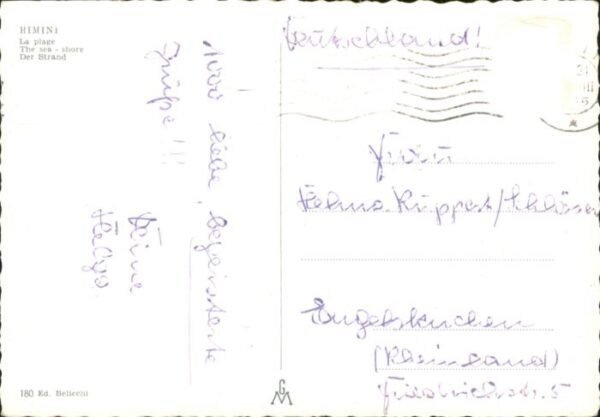 RIMINI
La plage
The sea - shore
Der Strand
1000 liebe, begeisterte
Grüße!!!
Deine
Helga.
Deutschland!
Helma Küppers/Schlösser
Engelskirchen
(Rheinland)
Friedrichstr. 5
180 Ed. Belicchi